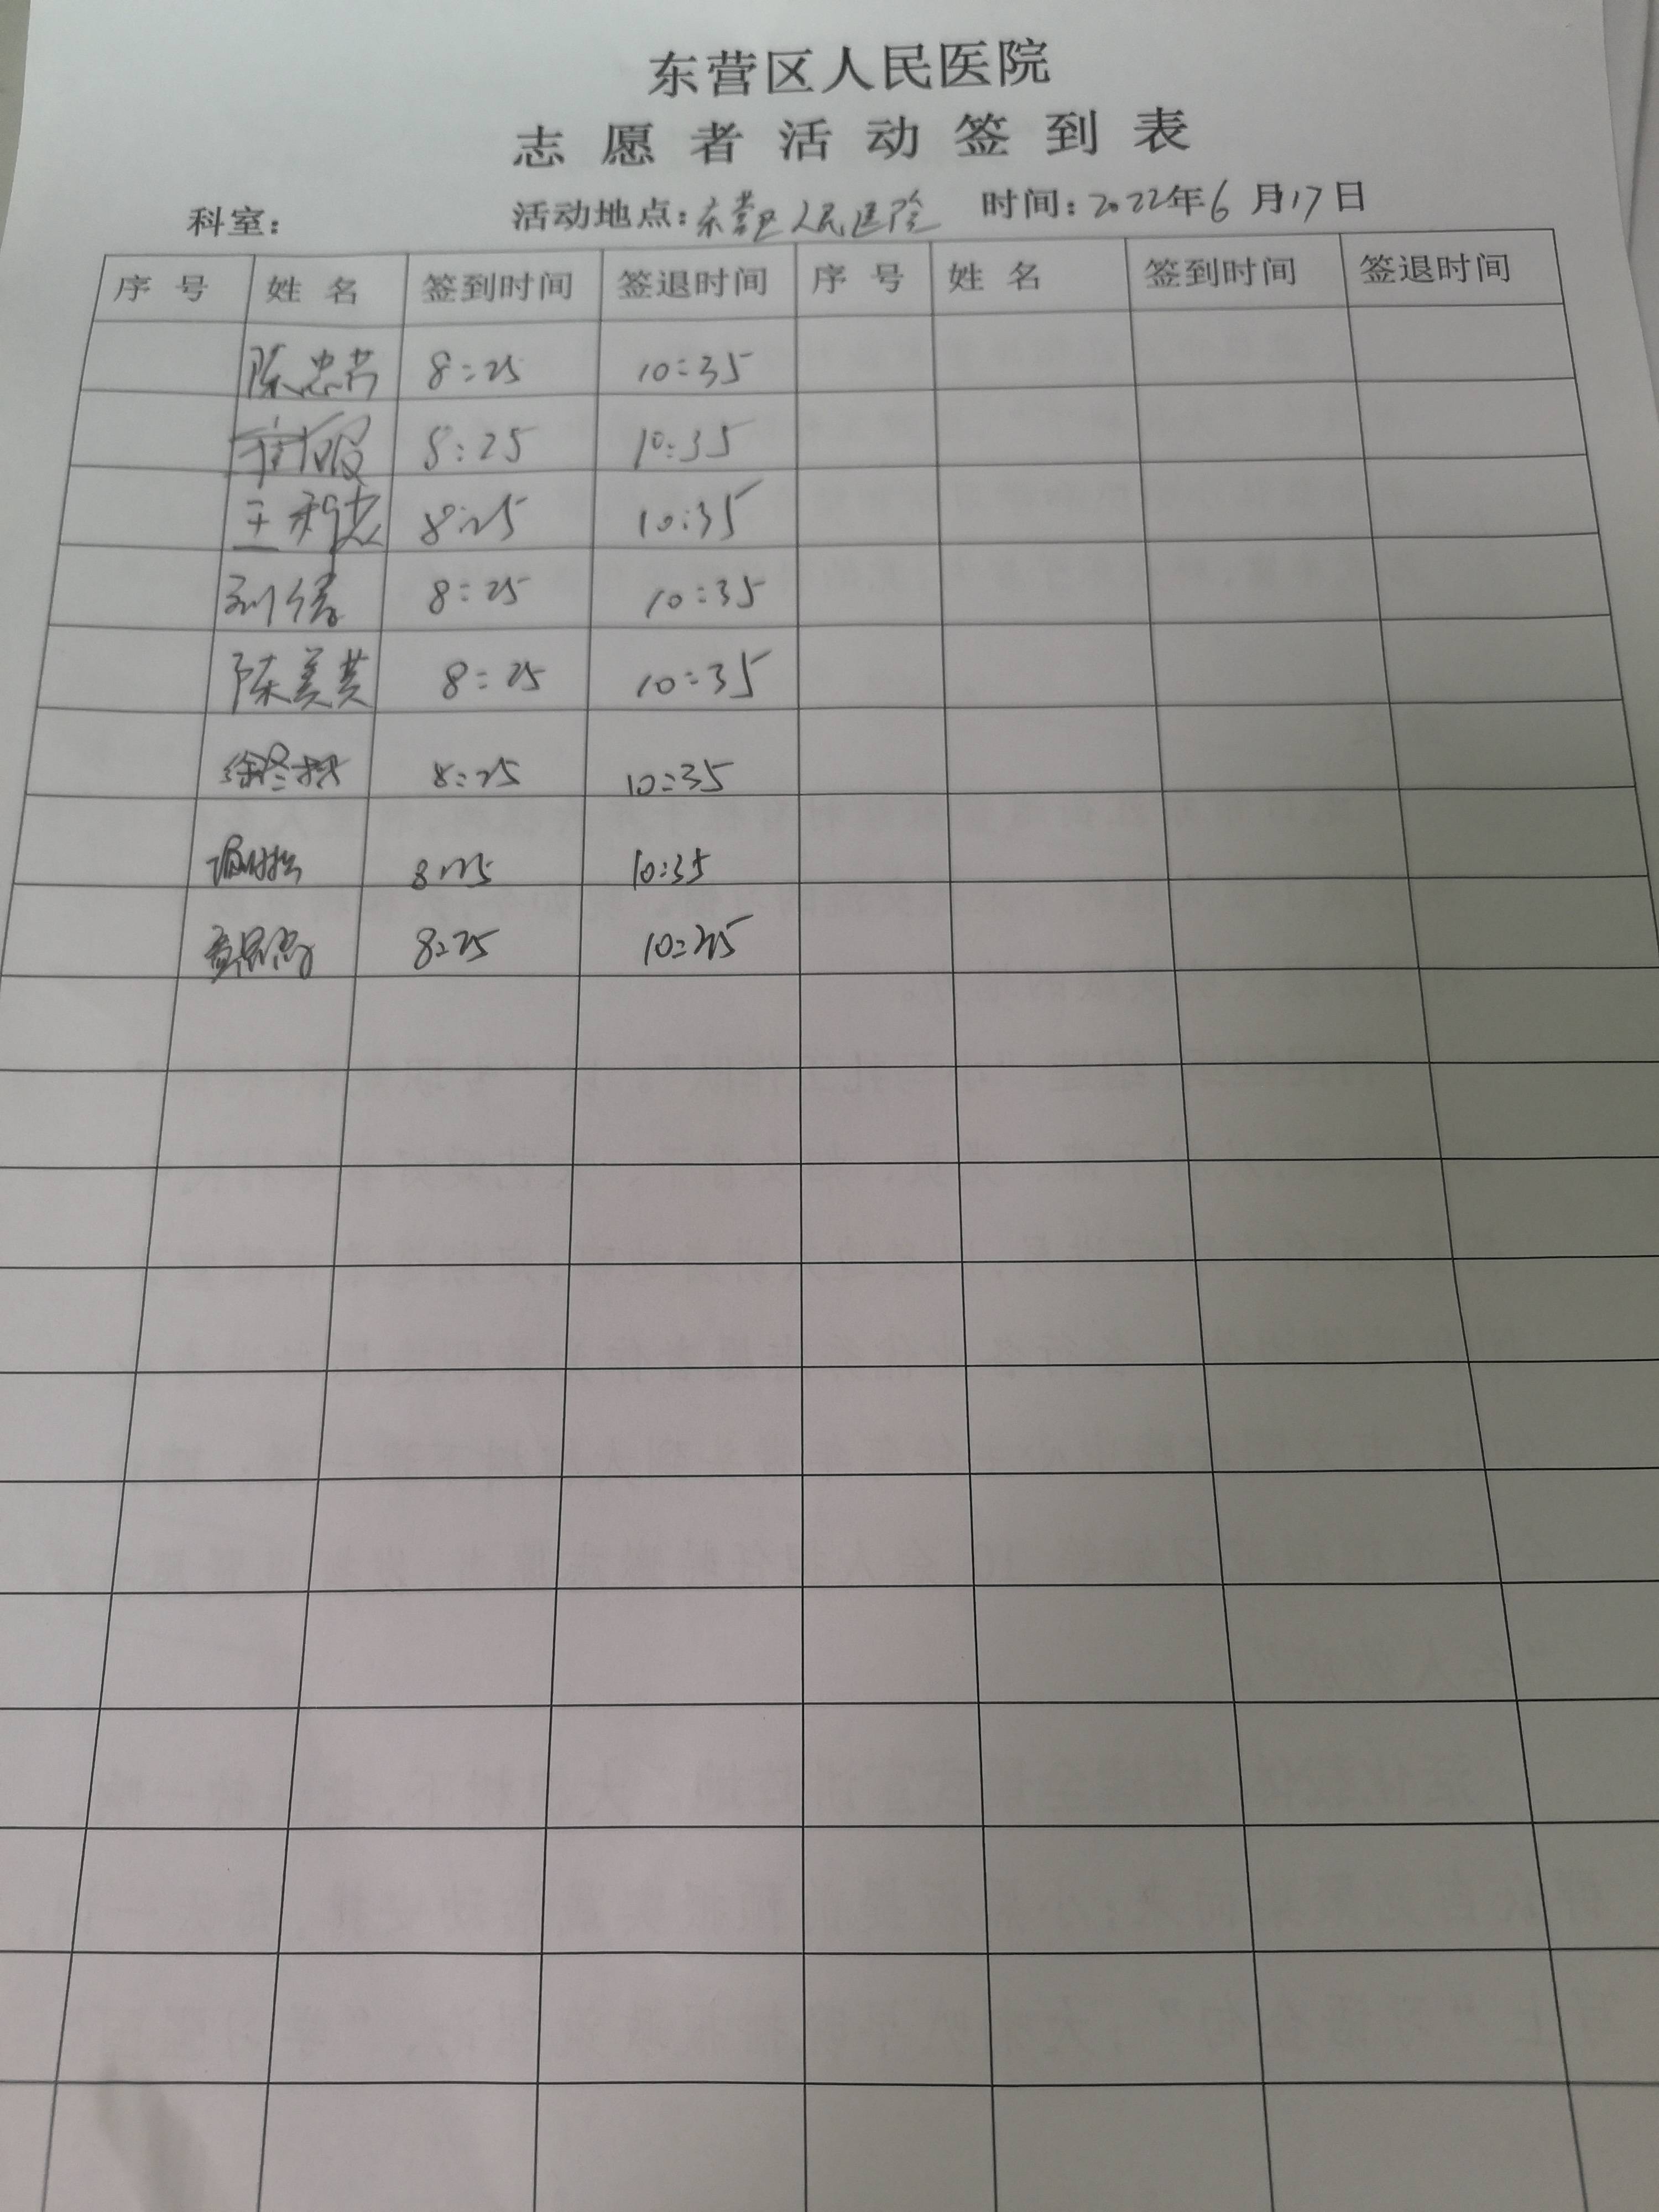 东营区人民医院
志愿者活动签到表
科室: 活动地点:东营区人民医院 时间:2022年6月17日
序号 姓名 签到时间 签退时间 序号 姓名 签到时间 签退时间
陈忠芳 8:25 10:35
8:25 10:35
王利忠 8:25 10:35
刘倩 8:25 10:35
陈美英 8:25 10:35
徐冬梅 8:25 10:35
8:25 10:35
8:25 10:35